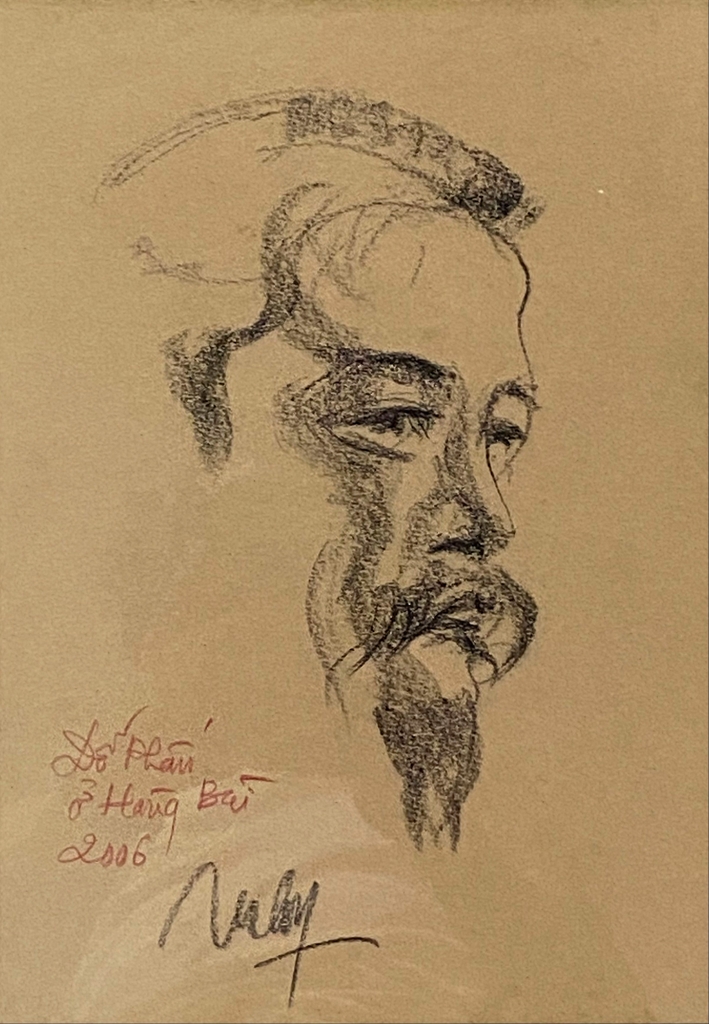 Đỗ Phấn
ở Hàng Bài
2006